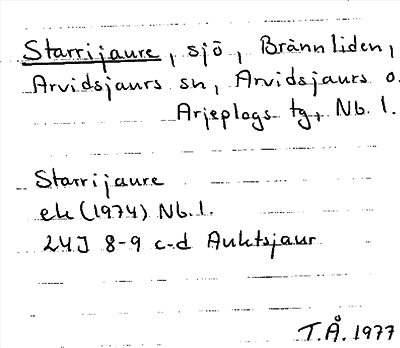 Starrijaure, sjö, Brännliden,
Arvidsjaurs sn, Arvidsjaurs o.
Arjeplogs tg, Nb. l.
Starrijaure
ek (1974) Nb. l.
24J 8-9 c-d Auktsjaur
T.Å. 1977